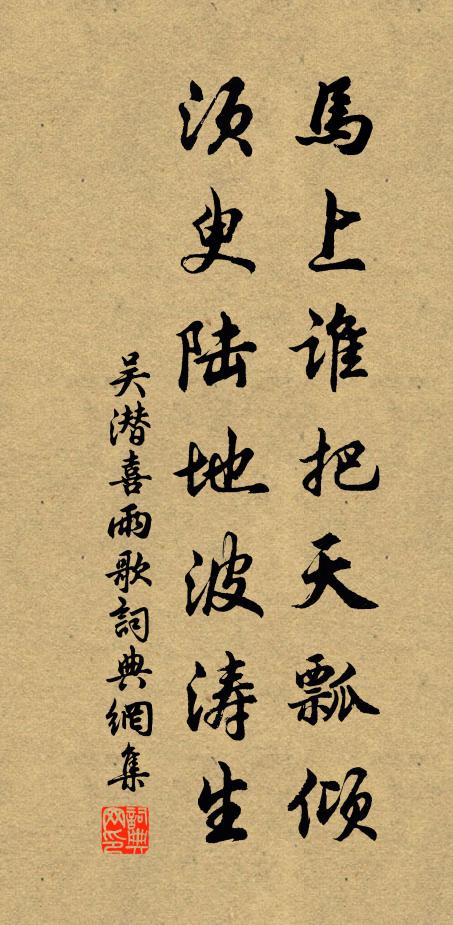 馬上誰把天瓢傾
須臾陆地波涛生
吴潜喜雨歌詞典網集
詞典網印